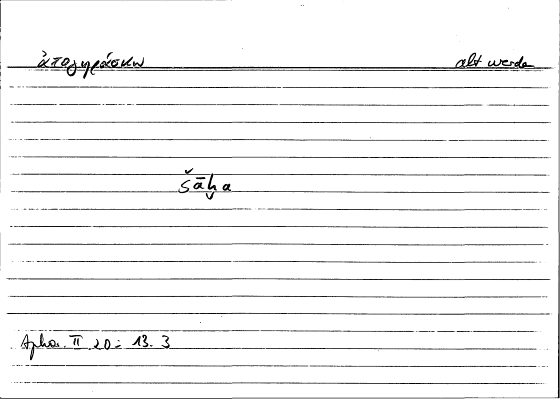 ἀπογηράσκω alt werden
šāḫa
Aphor. II 20 = 13.3